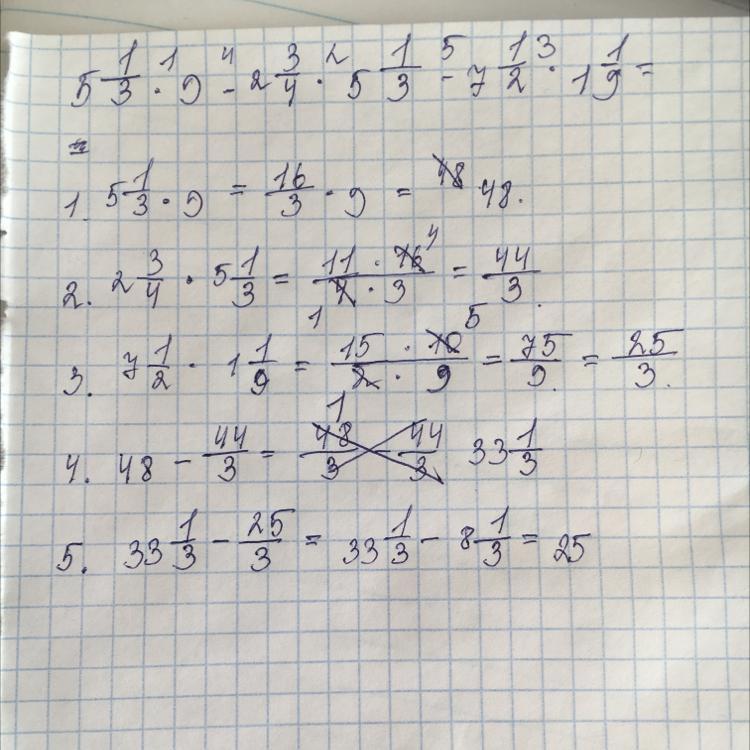 5 1/3 ¹· 9 ⁴- 2 3/4 ²· 5 1/3 ⁵- 7 1/2 ³· 1 1/9 =
=
1. 5 1/3 · 9 = 16/3 · 9 = 48 48.
2. 2 3/4 · 5 1/3 = 11 · 16 4 / 4 1 · 3 = 44/3.
3. 7 1/2 · 1 1/9 = 15 · 10 5 / 2 1 · 9 = 75/9. = 25/3.
4. 48 - 44/3 = 48/3 - 44/3 33 1/3
5. 33 1/3 - 25/3 = 33 1/3 - 8 1/3 = 25